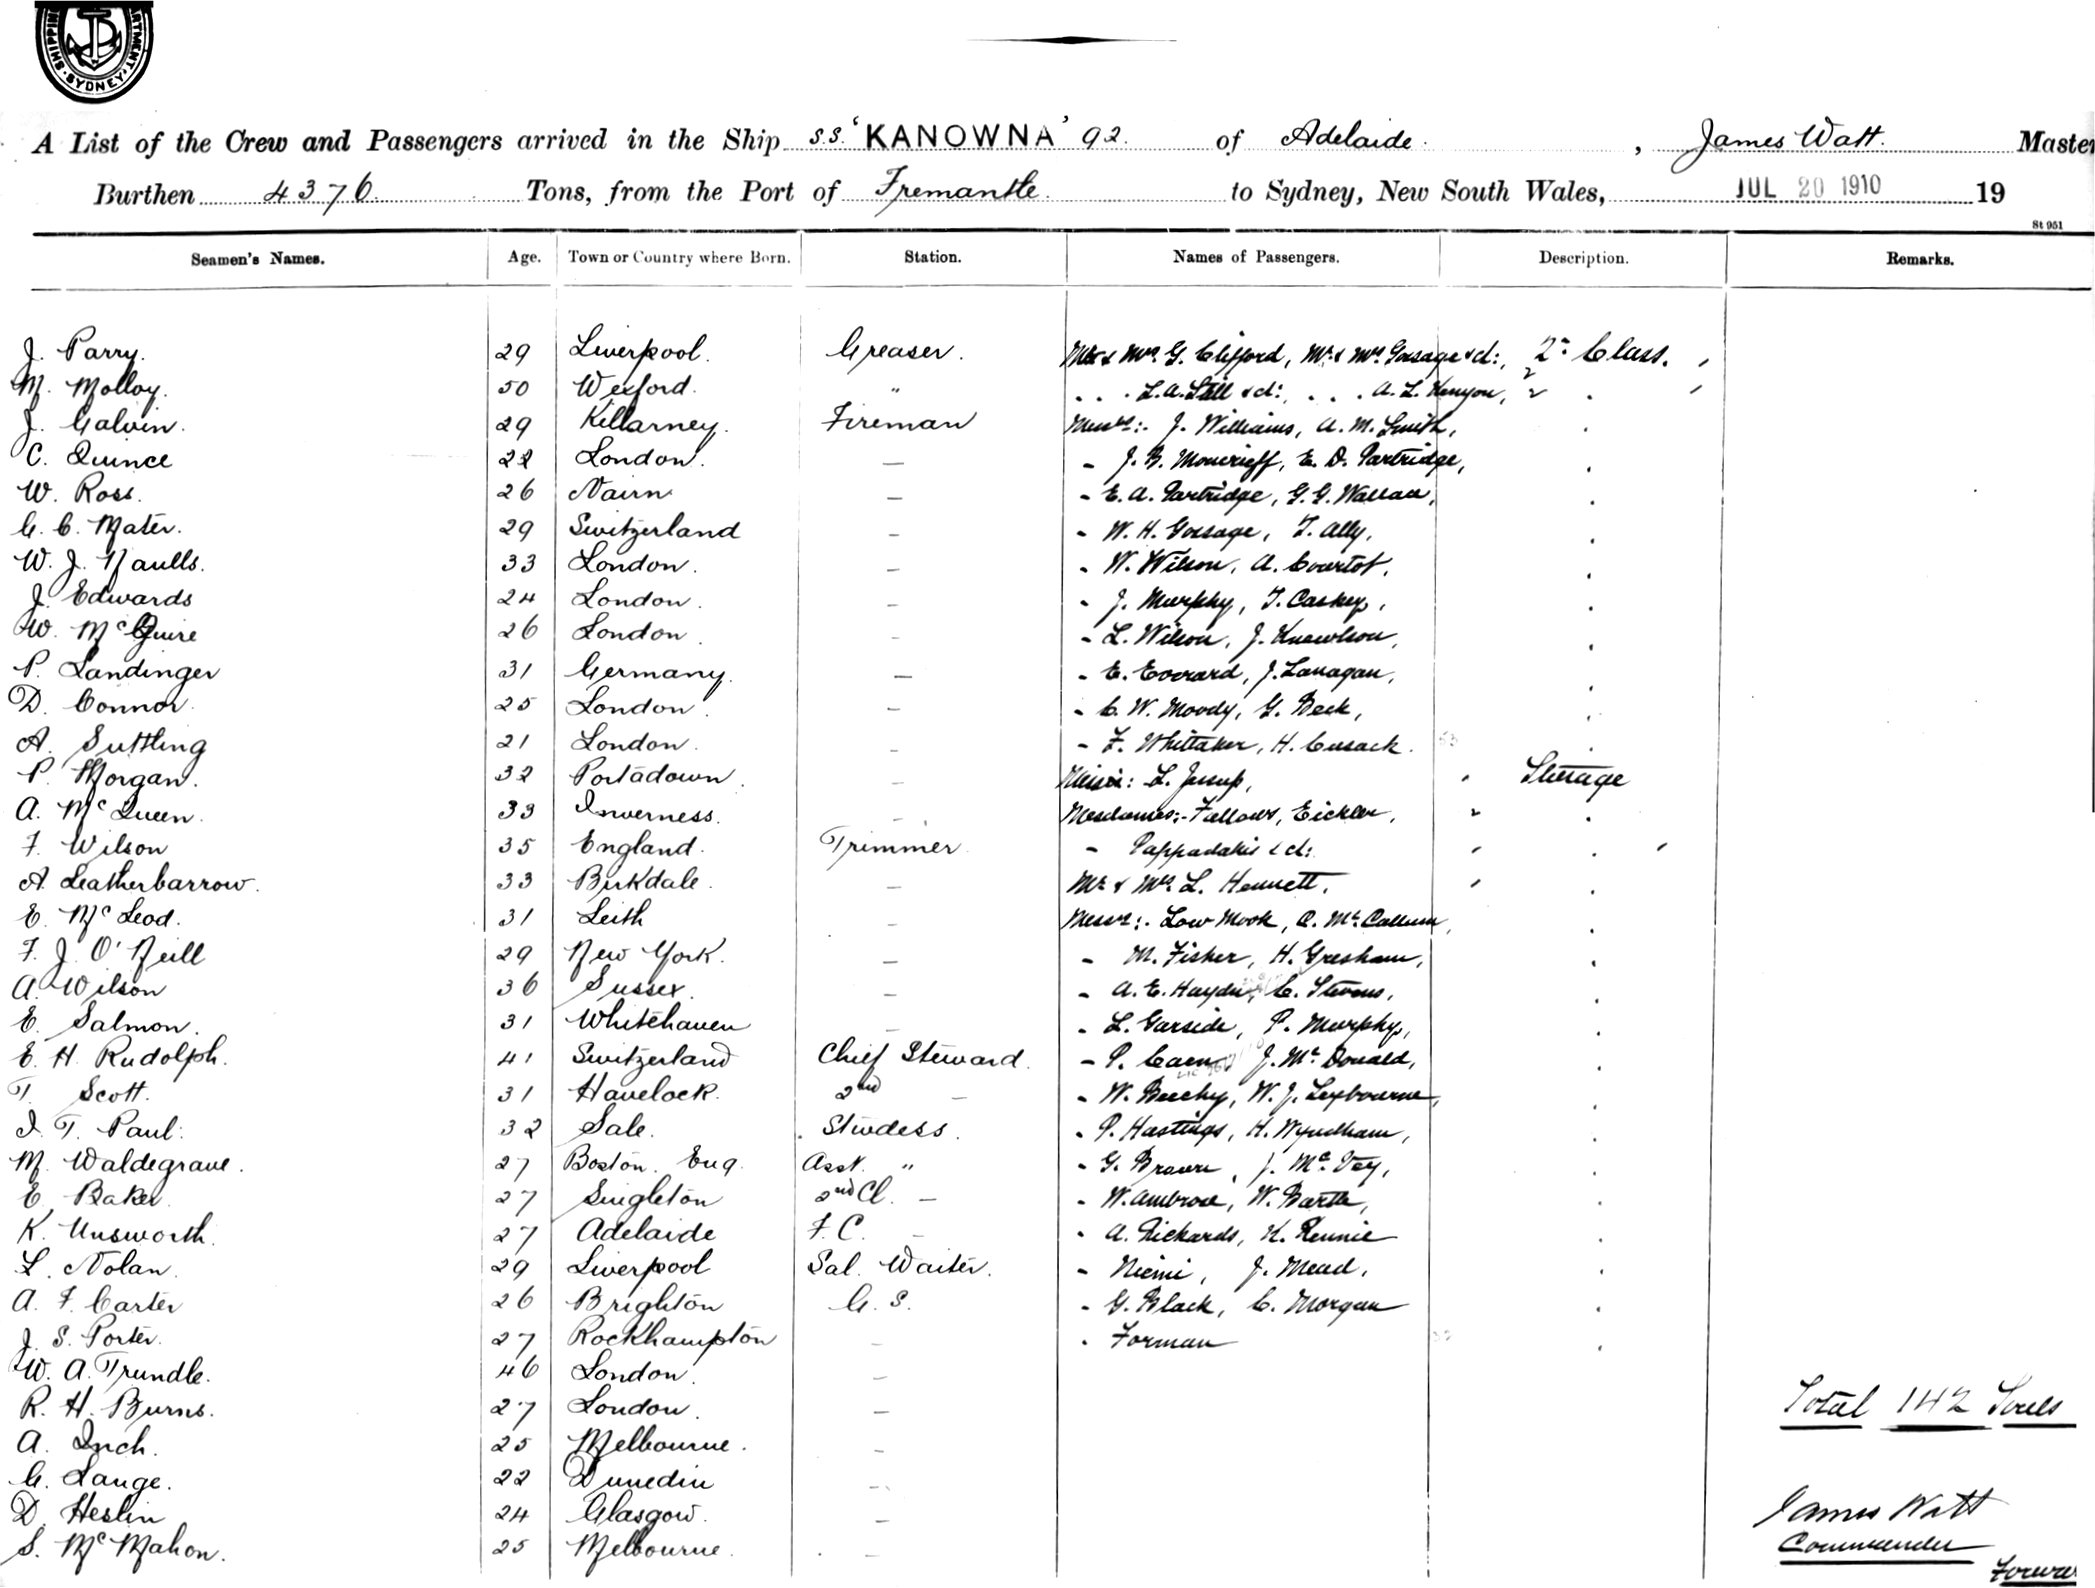 SHIPPING DEPARTMENT, SYDNEY
A List of the Crew and Passengers arrived in the Ship S.S. 'KANOWNA' 92. of Adelaide, James Watt. Master
Burthen 4376 Tons, from the Port of Fremantle. to Sydney, New South Wales, JUL 20 1910 19
St 951
Seamen's Names. Age. Town or Country where Born. Station. Names of Passengers. Description. Remarks.
J. Parry. 29 Liverpool. Greaser. Mr & Mrs. G. Clifford, Mr. & Mrs. Gossage & ch:, 2n Class.
M. Molloy. 50 Wexford. " . . . L.A. Still & ch:, . . . A. L. Kenyon,
J. Galvin. 29 Killarney. Fireman Messrs:. J. Williams, A. M. Smith,
C. Quince 22 London. — - J. B. Moncrieff, E. D. Partridge,
W. Ross. 26 Nairn — - E. A. Partridge, G. G. Wallace,
G. C. Mater. 29 Switzerland — - W. H. Gossage, T. Ally,
W. J. Naulls. 33 London. — - W. Wilson, A. Courtot,
J. Edwards 24 London. — - J. Murphy, T. Caskey,
W. McGuire 26 London. - - L. Wilson, J. Knowlson,
P. Landinger 31 Germany. — - E. Everard, J. Lanagan,
D. Connor. 25 London. — - C. W. Moody, G. Beck,
A. Suttling 21 London. - - F. Whittaker, H. Cusack. 53
P. Morgan. 32 Portadown. — L. Jessup, Steerage
A. McQueen. 33 Inverness. - Mesdames:- Fallows, Eickler,
F. Wilson 35 England. Trimmer - Pappadakis & ch:
A. Leatherbarrow. 33 Birkdale. — Mr. & Mrs. L. Hennett.
E. McLeod. 31 Leith — Messrs:. Low Mook, C. McCallum,
F. J. O'Neill 29 New York. — - M. Fisher, H. Gresham,
A. Wilson 36 Sussex. — - A. E. Hayden, C. Stevens,
E. Salmon. 31 Whitehaven — - L. Garside, P. Murphy,
E. H. Rudolph. 41 Switzerland Chief Steward. - P. Caen, J. McDonald,
T. Scott. 31 Havelock. 2nd — - W. Beechy, W. J. Lexbourne,
I. T. Paul. 32 Sale. Stwdess. - P. Hastings, H. Wyndham,
M. Waldegrave. 27 Boston. Eng. Asst. " - G. Brown, J. McVey,
E. Baker 27 Singleton 2nd Cl. — - W. Ambrose, W. Bartle,
K. Unsworth. 27 Adelaide F. C. - - A. Rickards, K. Rennie
L. Nolan. 29 Liverpool Sal. Waiter. - Niemi, J. Mead,
A. F. Carter 26 Brighton G. S. - G. Black, C. Morgan
J. S. Porter. 27 Rockhampton — - Forman
W. A. Trundle. 46 London. —
R. H. Burns. 27 London. — Total 142 Souls
A. Inch. 25 Melbourne. —
G. Lange. 22 Dunedin -
D. Heslin 24 Glasgow. — James Watt
S. McMahon. 25 Melbourne. — Commander